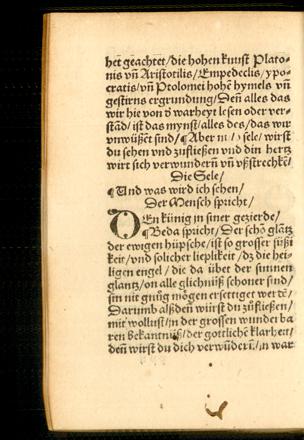 het geachtet/die hohen kunst Plato-
nis vñ Aristotilis/Empedeclis/ypo-
cratis/vñ Ptolomei hohẽ hymels vñ
gestirns ergrundung/Deñ alles das
wir hie von d̕ warheyt lesen oder ver-
stãd/ist das mynst/alles des/das wir
vnwüßet sind/¶Aber nu/o sele/wirst
du sehen vnd zufließen vnd din hertz
wirt sich verwundern vñ vßstrecken/
Die Sele/
¶Vnd was wird ich sehen/
Der Mensch spricht/
DEn künig jn siner gezierde/
¶Beda spricht/Der schõ glãtz
der ewigen hüpsche/ist so grosser süßi
keit/vnd solicher lieplikeit/dz die hei-
ligen engel/die da über der sunnen
glantz/on alle glichnüß schoner sind/
sin nit gnůg mögen ersettiget werdẽ/
Darumb alßdeñ wirst du zůfließen/
mit wollust/jn der grossen wunderba
ren bekantnüß/der gottlichẽ klarheit/
deñ wirst du dich verwũdern/jn war